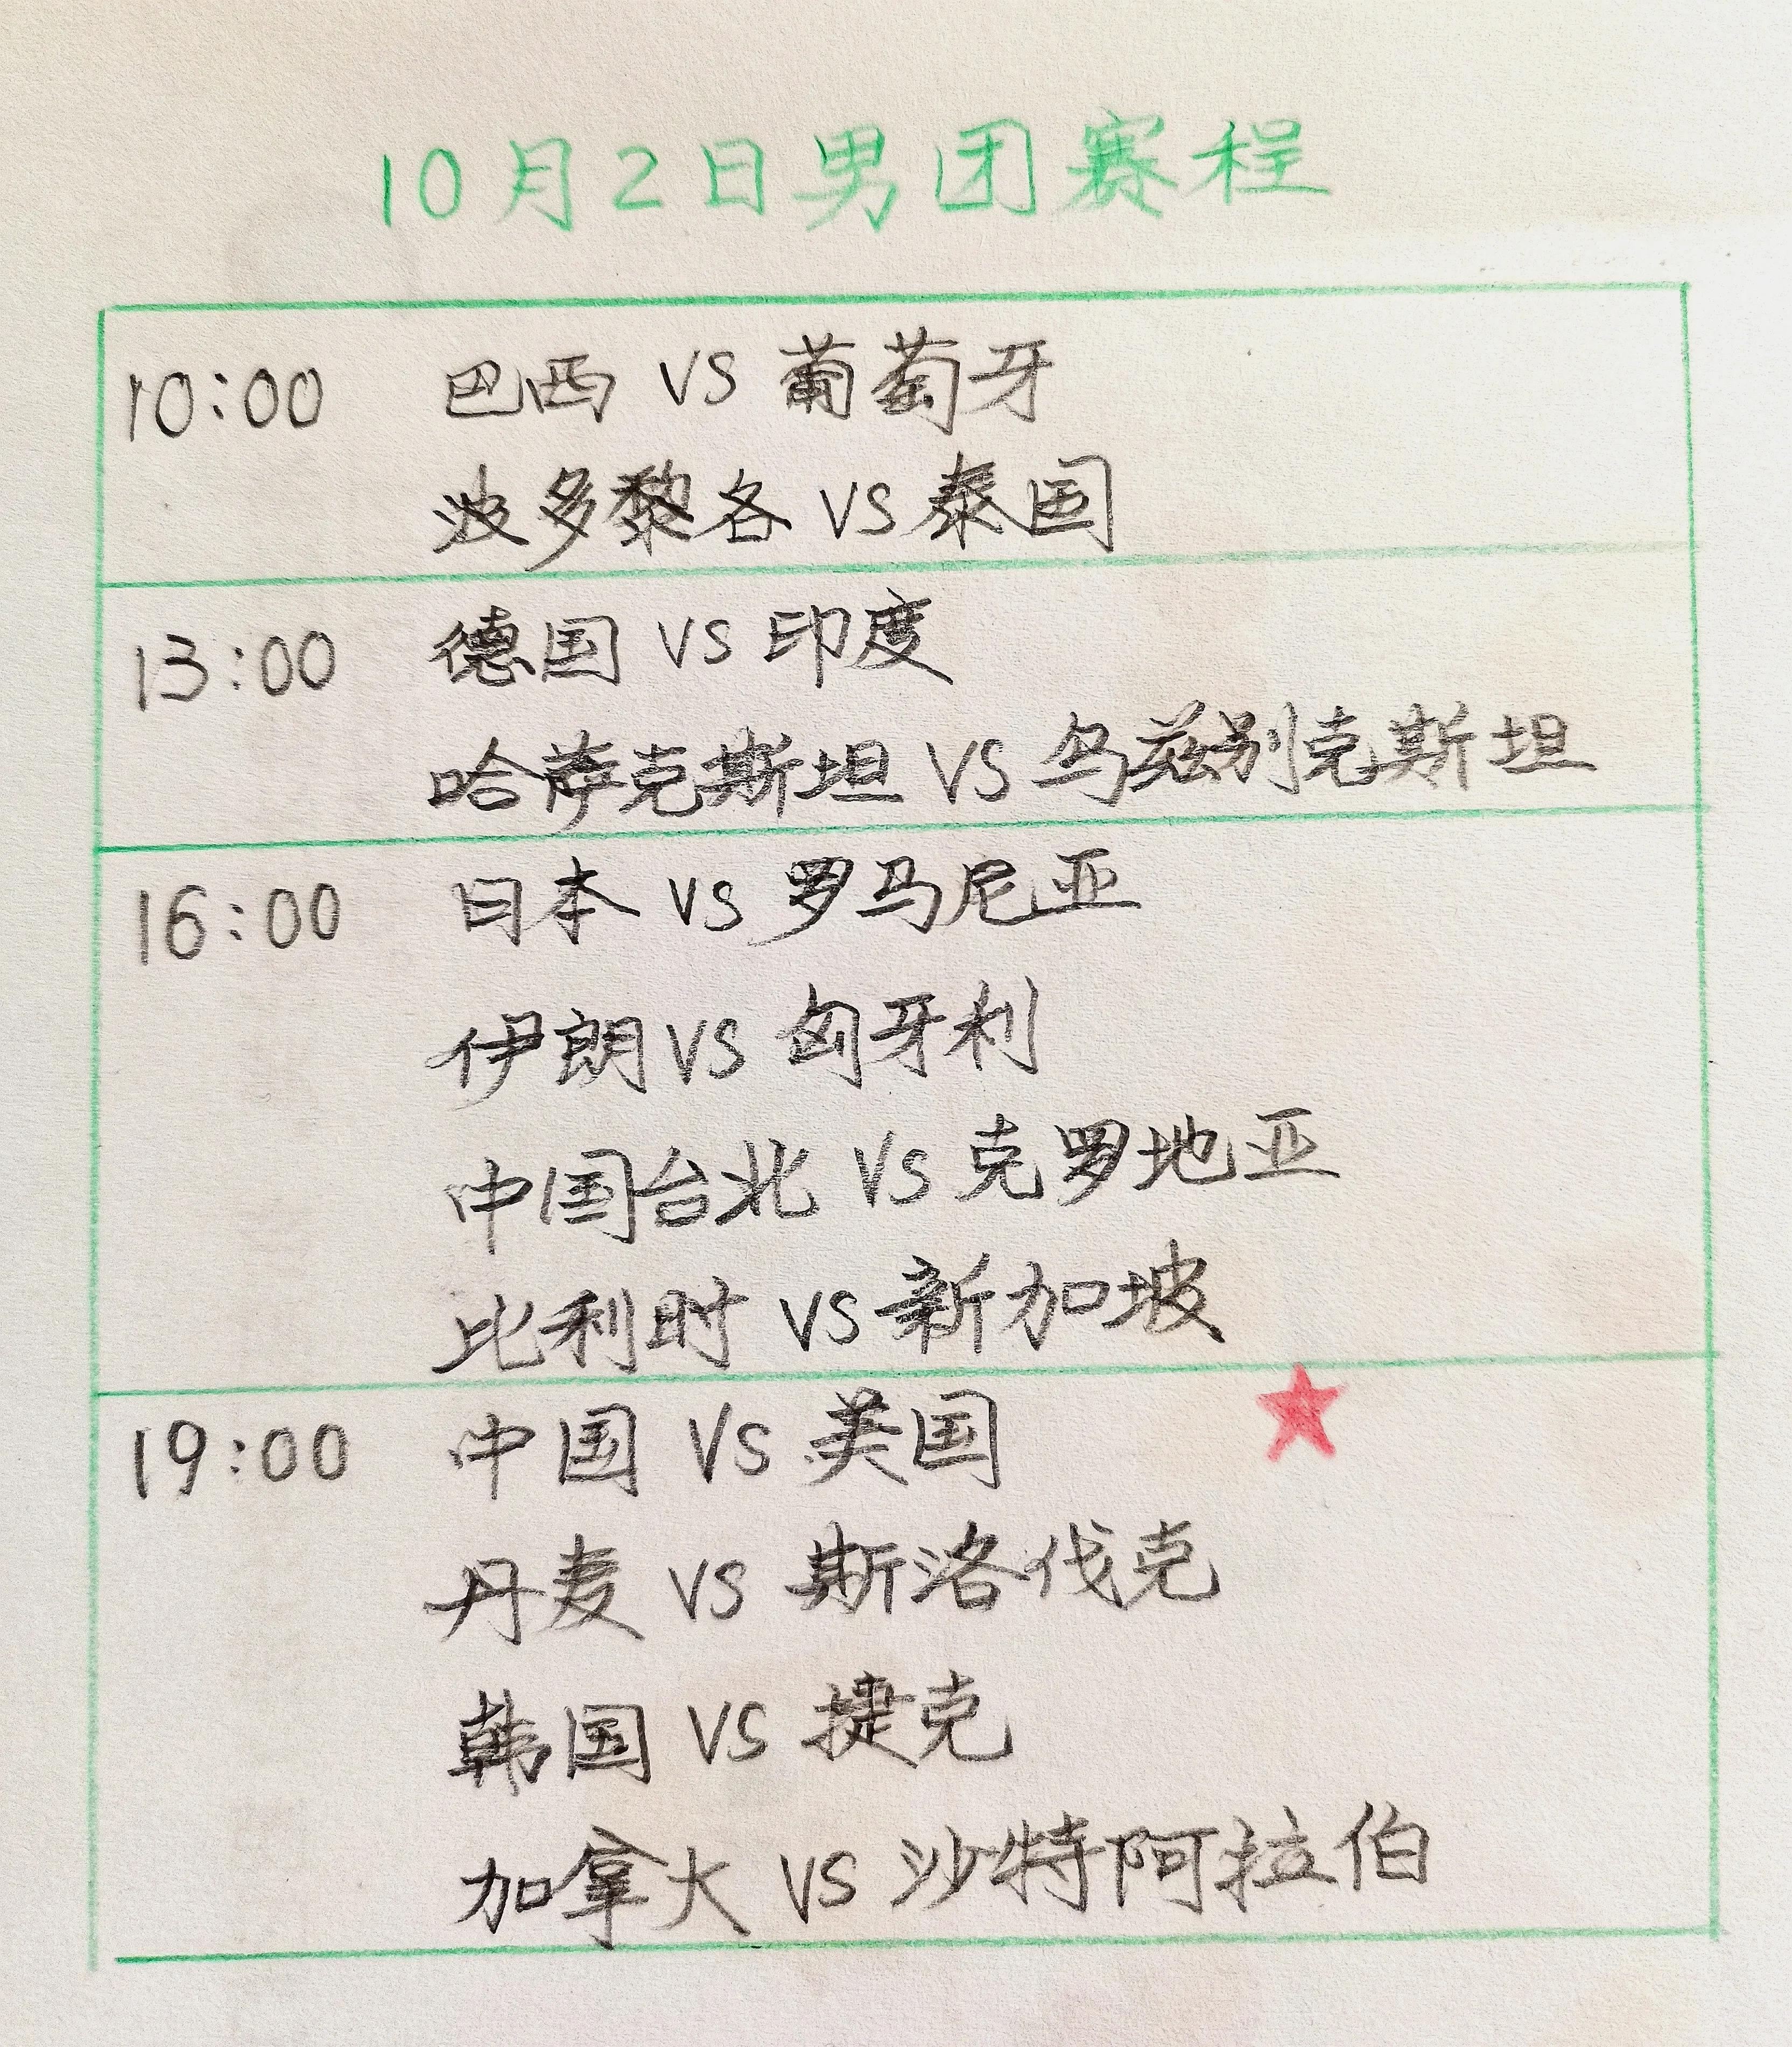 10月2日男团赛程
10:00 巴西 VS 葡萄牙
波多黎各 VS 泰国
13:00 德国 VS 印度
哈萨克斯坦 VS 乌兹别克斯坦
16:00 日本 VS 罗马尼亚
伊朗 VS 匈牙利
中国台北 VS 克罗地亚
比利时 VS 新加坡
19:00 中国 VS 美国
丹麦 VS 斯洛伐克
韩国 VS 捷克
加拿大 VS 沙特阿拉伯